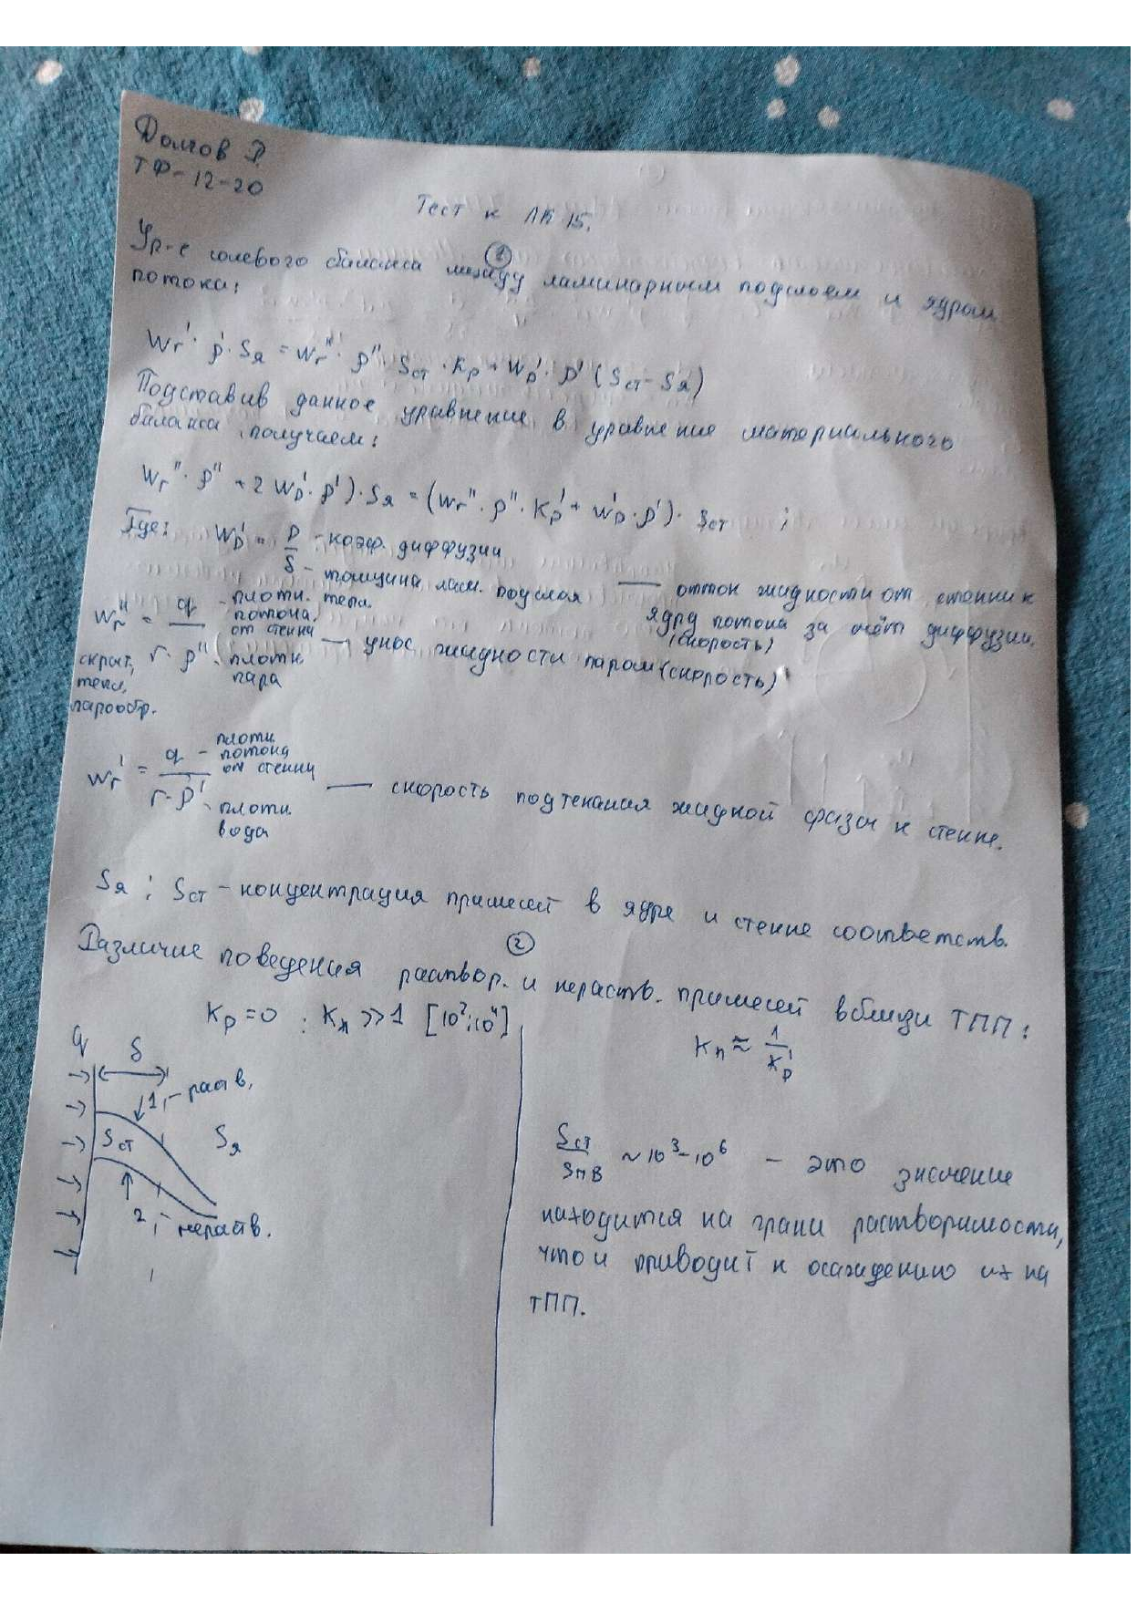 Долгов Р.
ТФ-12-20
Тест к ЛК 15.
①
Ур-е солевого баланса между ламинарным подслоем и ядром
потока:
Wг' · ρ' · Sя = Wг'' · ρ'' · Sст · Kр + WD' · ρ' (Sст - Sя)
Подставив данное уравнение в уравнение материального
баланса, получаем:
Wг'' · ρ'' + 2 WD' · ρ') · Sя = (Wг'' · ρ'' · Kр' + WD' · ρ') · Sст ;
Где: WD' = D/δ - коэф. диффузии
- толщина лам. подслоя — отток жидкости от стенки к
ядру потока за счёт диффузии.
(скорость)
Wг'' = q/(r · ρ'') - плотн. тепл.
потока
от стенки
- плотн
пара
— унос жидкости паром (скорость)
скрыт,
тепл,
парообр.
Wг' = q/(r · ρ') - плотн
потока
от стенки
- плотн.
вода
— скорость подтекания жидкой фазы к стенке.
Sя ; Sст - концентрация примесей в ядре и стенке соответств.
②
Различие поведения раствор. и нераств. примесей вблизи ТПП:
Kр = 0 ; Kп >> 1 [10²; 10⁴]
Kп ≈ 1/Kр'
q δ
1,- раств,
Sст Sя
2,- нераств.
Sст/Sпв ~ 10³-10⁶ - это значение
находится на грани растворимости,
что и приводит к осаждению их на
ТПП.